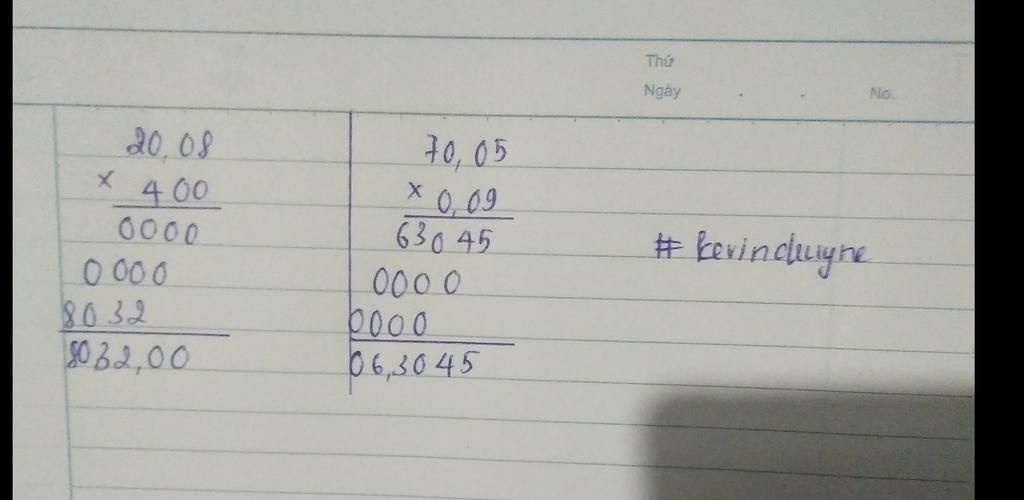 Thứ
Ngày . . No.
20,08
x 400
0000
0000
8032
8032,00
70,05
x 0,09
63045
0000
0000
06,3045